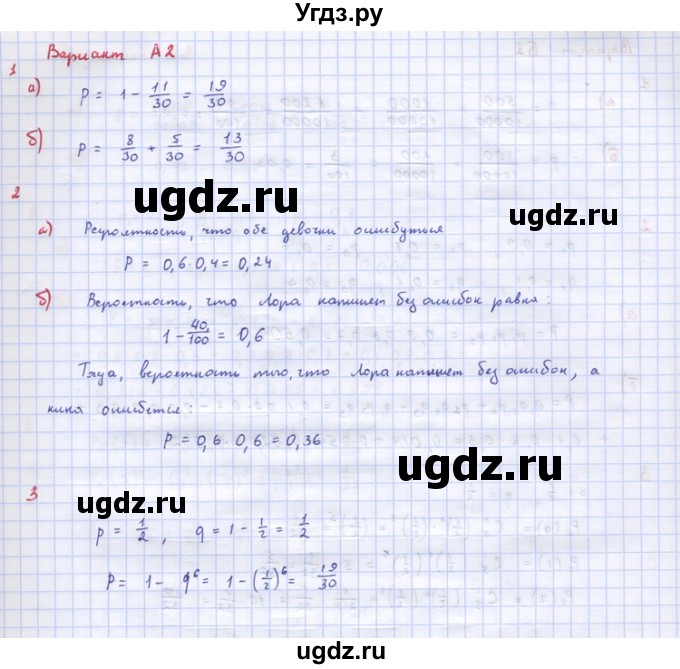 Угдз.ру
Вариант А2
1
а) P = 1 - 11/30 = 19/30
б) P = 8/30 + 5/30 = 13/30
ugdz.ru ugdz.ru
2
а) Рероятность, что обе девочки ошибуться
P = 0,6 · 0,4 = 0,24
б) Вероятность, что Лора напишет без ошибок равна:
1 - 40/100 = 0,6
Тгуа, вероятность того, что Лора напишет без ошибок, а
кина ошибется:
P = 0,6 · 0,6 = 0,36
ugdz.ru
3
ugdz.ru
p = 1/2, q = 1 - 1/2 = 1/2
P = 1 - q⁶ = 1 - (1/2)⁶ = 19/30
ugdz.ru
ugdz.ru